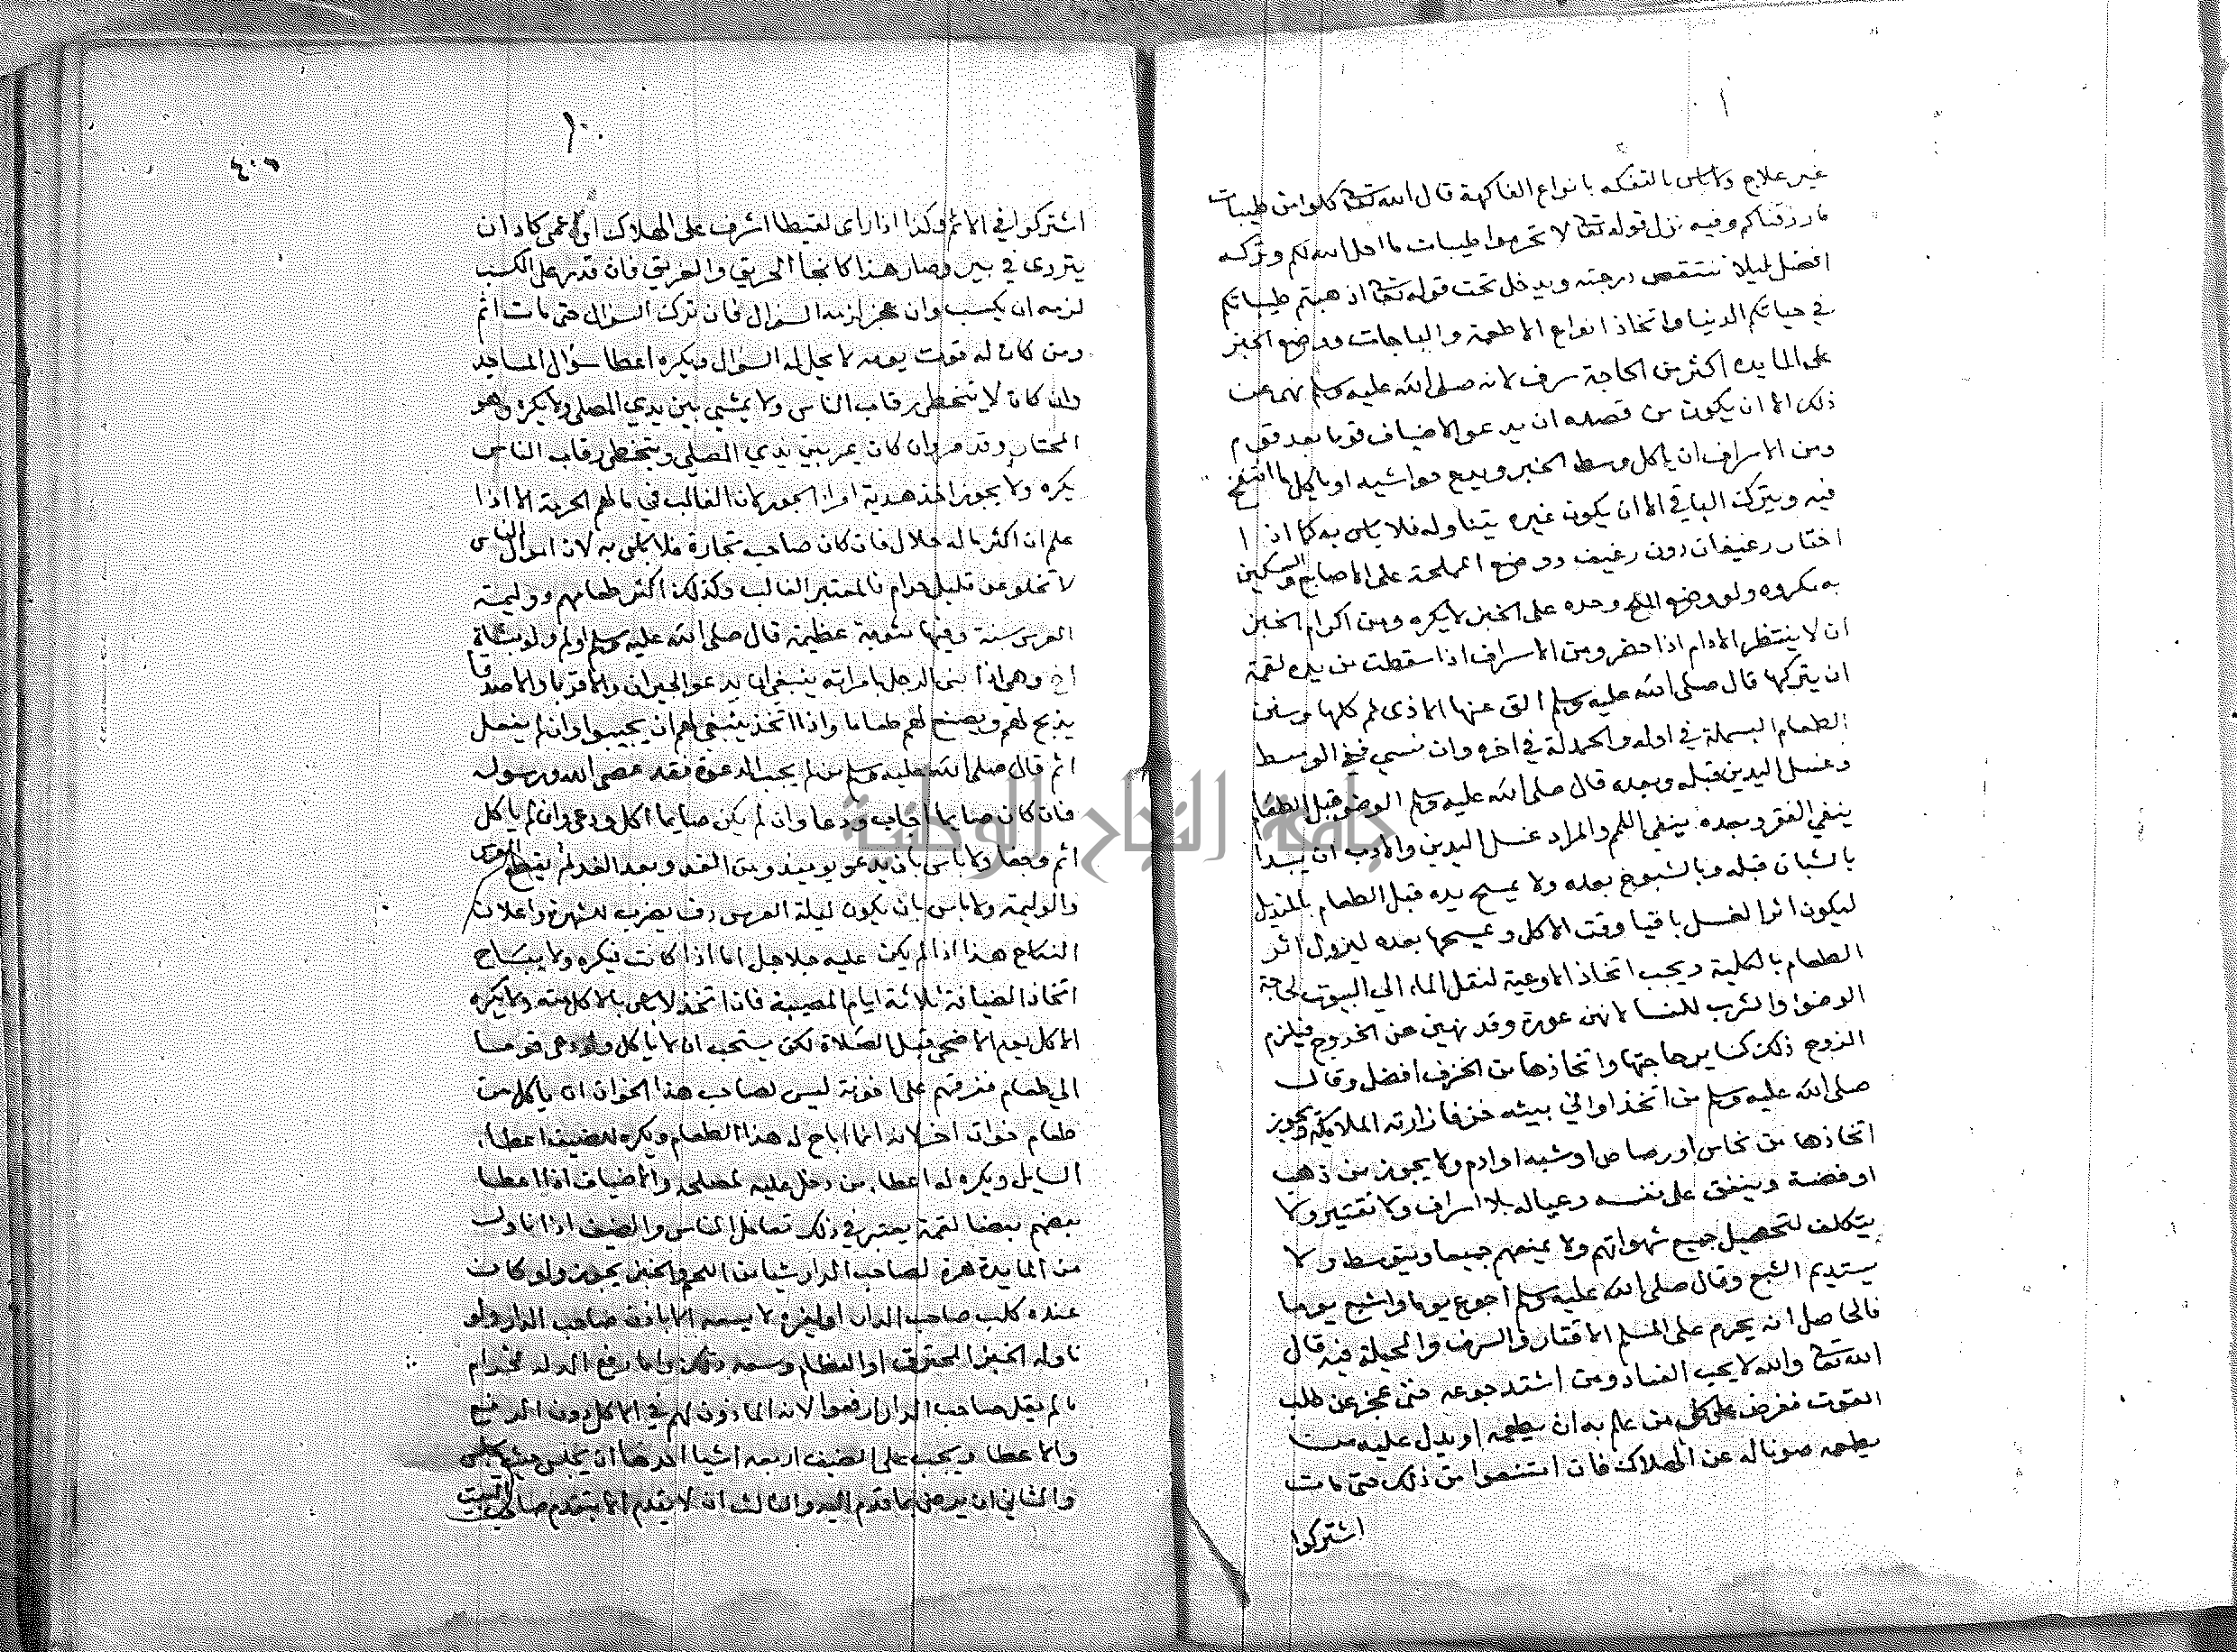 غير علاج ولا باس بالتفكه بانواع الفاكهة قال الله تعالى كلوا من طيبات
ما رزقناكم وفيه نزل قوله تعالى لا تحرموا طيبات ما احل الله لكم وتركه
افضل ليلا تنتقص درجته ويدخل تحت قوله تعالى اذهبتم طيباتكم
في حياتكم الدنيا واتخاذ انواع الاطعمة والباجات ووضع الخبز
على المايده اكثر من الحاجة سرف لانه صلى الله عليه وسلم نهى عن
ذلك الا ان يكون من قصده ان يدعو الاضياف قوما بعد قوم
ومن الاسراف ان ياكل وسط الخبز ويدع حواشيه او ياكل ما انتفخ
فيه ويترك الباقي الا ان يكون غيره يتناوله فلا باس به كما اذا
اختار رغيفا دون رغيف ووضع المملحة على الاصابع والسكين
به مكروه ولو وضع الملح وحده على الخبز لا يكره ومن اكرام الخبز
ان لا ينتظر الادام اذا حضر ومن الاسراف اذا سقطت من يده لقمة
ان يتركها قال صلى الله عليه وسلم الق عنها الاذى ثم كلها وسنن
الطعام البسملة في اوله والحمدلة في اخره وان نسي ففي الوسط
وغسل اليدين قبله وبعده قال صلى الله عليه وسلم الوضو قبل الطعام
ينفي الفقر وبعده ينفي اللمم والمراد غسل اليدين والادب ان يبدا
بالشبان قبله وبالشيوخ بعده ولا يمسح يده قبل الطعام بالمنديل
ليكون اثر الغسل باقيا وقت الاكل ويمسحها بعده ليزول اثر
الطعام بالكلية ويجب اتخاذ الاوعية لنقل الماء الي البيوت لحاجة
الوضوا والشرب للنسا لانهن عورة وقد نهين عن الخروج فيلزم
الزوج ذلك كساير حاجتها واتخاذها من الخزف افضل وقال
صلى الله عليه وسلم من اتخذ اواني بيته خزفا زارته الملايكة ويجوز
اتخاذها من نحاس او رصاص او شبه او ادم ولا يجوز من ذهب
او فضة وينفق على نفسه وعياله بلا اسراف ولا تقتير ولا
يتكلف لتحصيل جميع شهواتهم ولا يمنعهم جميعا ويتوسط ولا
يستديم الشبع وقال صلى الله عليه وسلم اجوع يوما واشبع يوما
فالحاصل انه يحرم على المسلم الاقتار والسرف والحيلة فيه قال
الله تعالى والله لا يحب الفساد ومن اشتد جوعه حتى عجز عن طلب
القوت ففرض على كل من علم به ان يطعمه او يدل عليه من
يطعمه صونا له عن الهلاك فان امتنعوا من ذلك حتى مات
اشتركوا
٤٠٦
اشتركوا في الاثم وكذا اذا راى لقيطا اشرف على الهلاك او اعمى كاد ان
يتردى في بير وصار هذا كانجا الحريق والغريق فان قدر على الكسب
لزمه ان يكسب وان عجز لزمه السوال فان ترك السوال حتى مات اثم
ومن كان له قوت يومه لا يحل له السوال ويكره اعطا سؤال المساجد
وان كان لا يتخطى رقاب الناس ولا يمشي بين يدي المصلى ولا يكره وهو
المختار وقد مر وان كان يمر بين يدي المصلي ويتخطى رقاب الناس
يكره ولا يجوز اخذ هدية امرا الجور لان الغالب في مالهم الحرمة الا اذا
علم ان اكثر ماله حلال فان كان صاحب تجارة فلا باس به لان اموال الناس
لا تخلو عن قليل حرام فالمعتبر الغالب وكذلك اكثر طعامهم ووليمة
العرس سنة وفيها مثوبة عظيمة قال صلى الله عليه وسلم اولم ولو بشاة
اخ وهي اذا بنى الرجل بامراته ينبغي ان يدعو الجيران والاقربا والاصدقا
يذبح لهم ويصنع لهم طعاما واذا اتخذ ينبغي لهم ان يجيبوا وان لم يفعل
اثم قال صلى الله عليه وسلم من لم يجب الدعوة فقد عصى الله ورسوله
فان كان صايما اجاب ودعا وان لم يكن صايما اكل ودعى وان لم ياكل
اثم وجفا ولا باس بان يدعو يوميذ ومن الغد وبعد الغد ثم ينقطع العرس
والوليمة ولا باس بان يكون ليلة العرس دف يضرب للشهرة واعلان
النكاح هذا اذا لم يكن عليه جلاجل اما اذا كانت فيكره ولا يباح
اتخاذ الضيافة ثلاثة ايام المصيبة فاذا اتخذ لا باس بالاكل منه ولا يكره
الاكل يوم الاضحى قبل الصلاة لكن يستحب ان لا ياكل ولو دعى قوما
الي طعام ففرقهم على اخونة ليس لصاحب هذا الخوان ان ياكل من
طعام خوان اخر لانه انما اباح له هذا الطعام ويكره للضيف اعطاء
السايل ويكره له اعطاء من دخل عليه لمصلحة والاضياف اذا اعطا
بعضهم بعضا لقمة يعتبر في ذلك تعامل الناس والضيف اذا ناول
من المايدة هرة لصاحب الدار شيا من اللحم والخبز يجوز ولو كان
عنده كلب صاحب الدار او لغيره لا يسعه الا باذن صاحب الدار ولو
ناوله الخبز المحترق او العظام وسعه ذلك واما رفع الدله فحرام
ما لم يقل صاحب الدار ارفعوا لانه الماذون لهم في الاكل دون الرفع
والاعطا ويجب على الضيف اربعة اشيا احدها ان يجلس حيث يجلس
والثاني ان يرضى بما قدم اليه والثالث ان لا يقدم الا بتقدم صاحب البيت
جامعة النجاح الوطنية